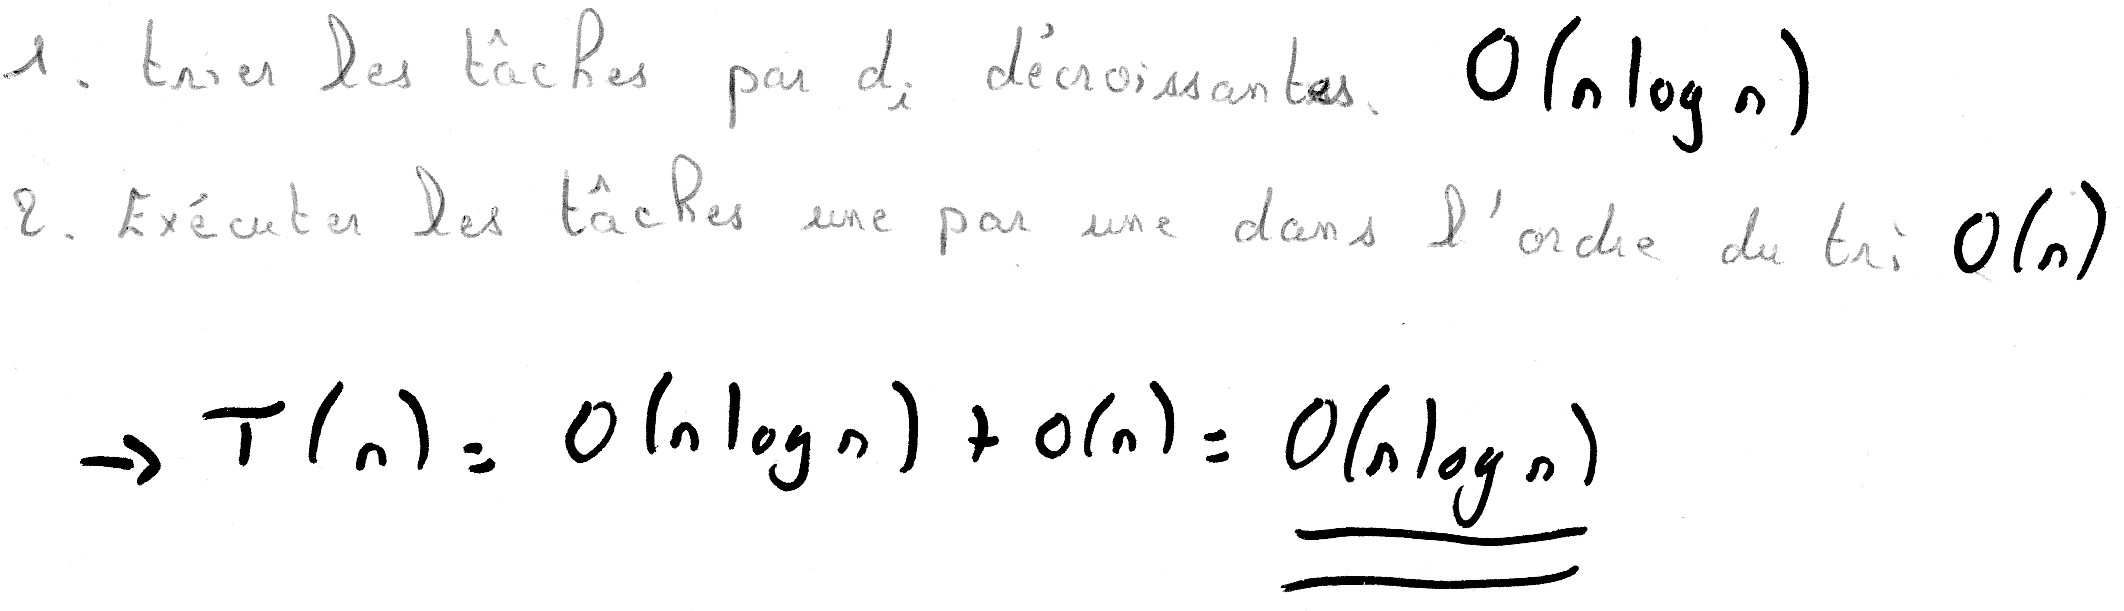 1. trier les tâches par di décroissantes. O(n log n)
2. Exécuter les tâches une par une dans l'ordre du tri O(n)
→ T(n) = O(n log n) + O(n) = O(n log n)